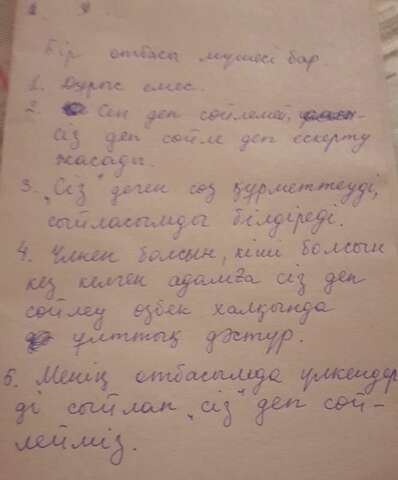 Бір отбасы мүшесі бар
1. Дұрыс емес.
2. Сен деп сөйлемей,
сіз деп сөйле деп ескерту
жасады.
3. „Сіз" деген сөз құрметтеуді,
сыйласымды білдіреді.
4. Үлкен болсын, кіші болсын
кез келген адамға сіз деп
сөйлеу өзбек халқында
ұлттық дәстүр.
5. Менің отбасымда үлкендер
ді сыйлап „сіз" деп сөй-
лейміз.